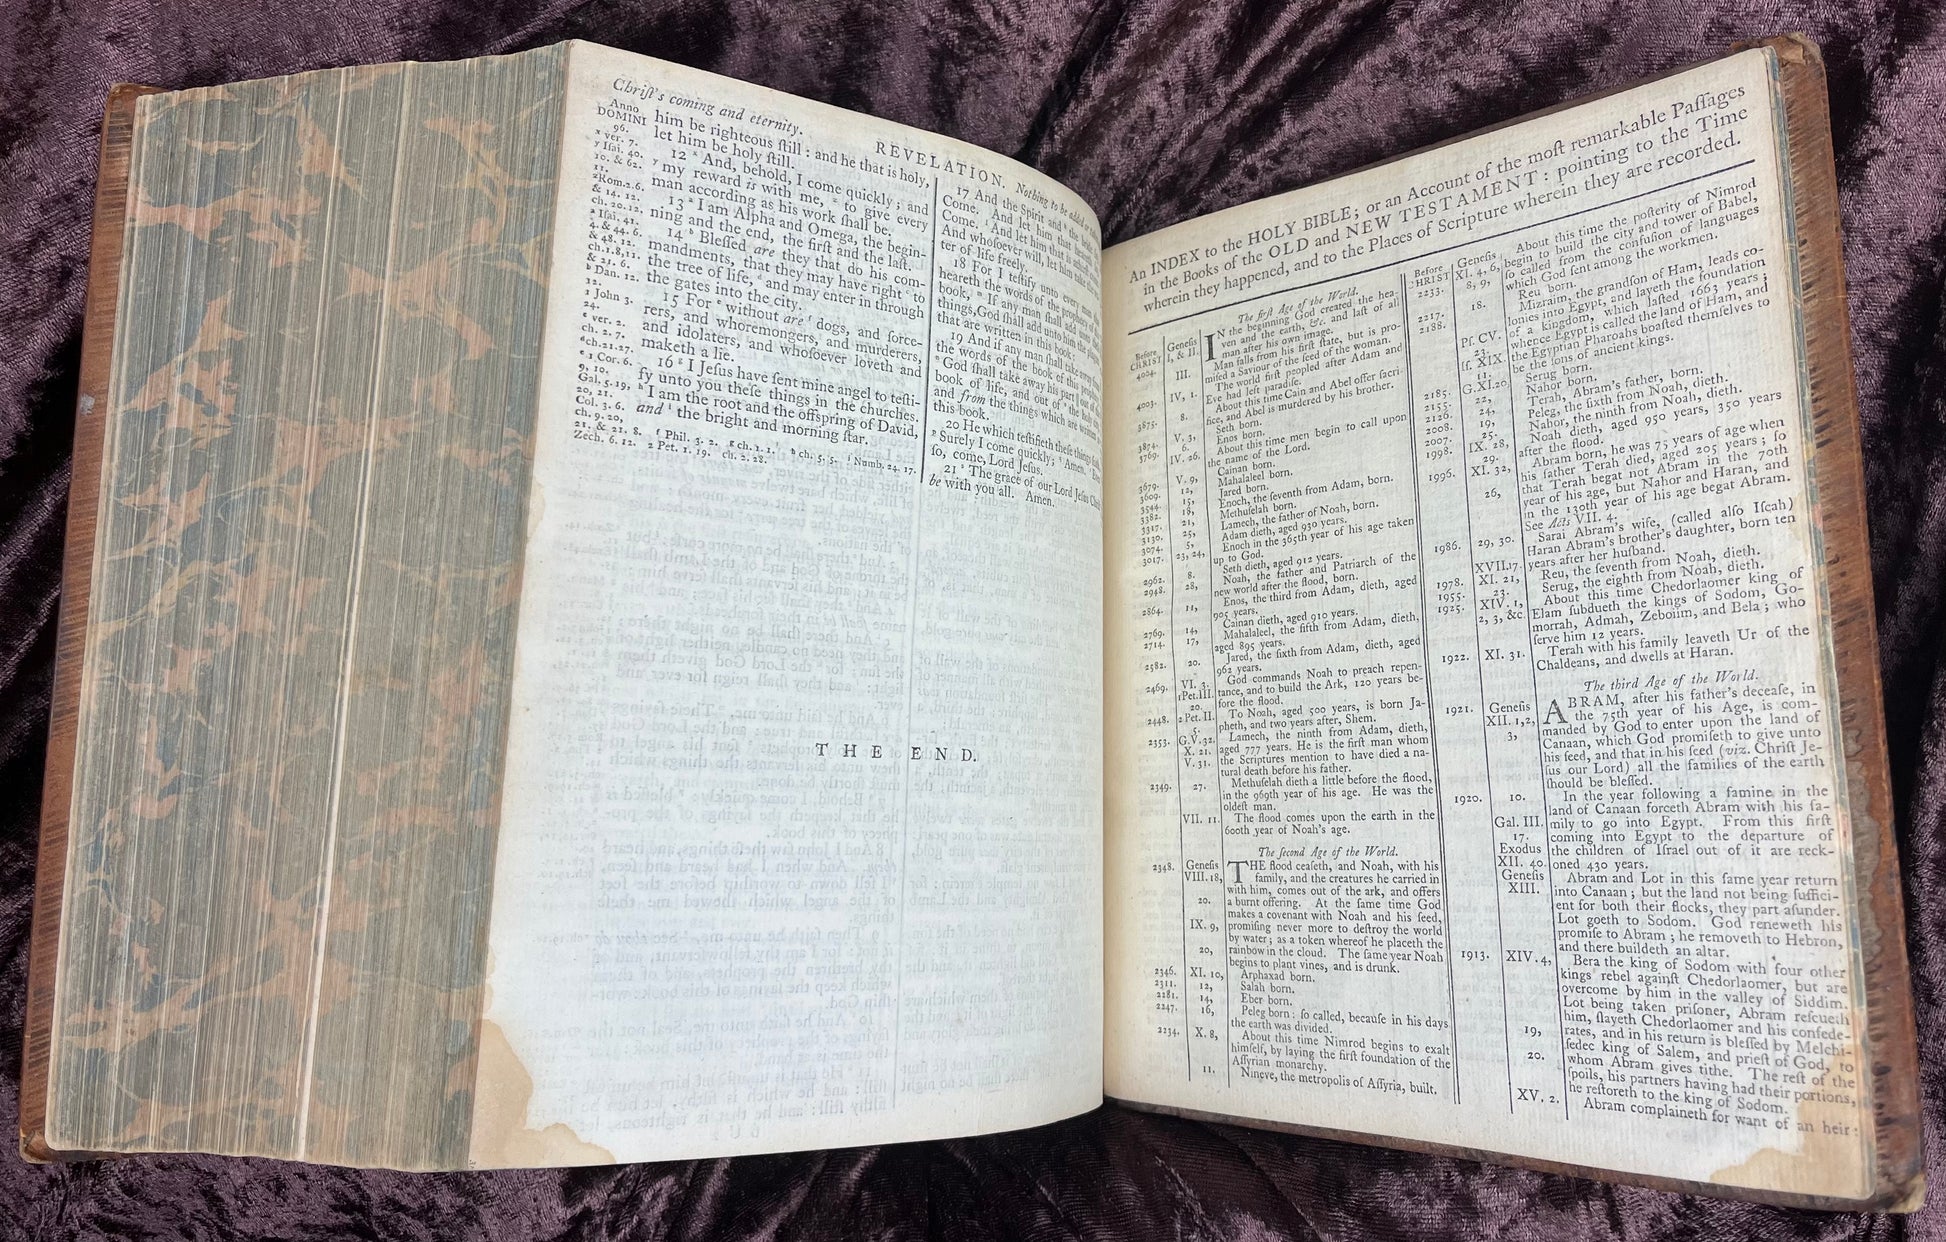 Chriſt's coming and eternity.
REVELATION.
Nothing to be added or
Anno
DOMINI
96.
x ver. 7.
y Iſai. 40.
10. & 62.
11.
z Rom. 2. 6.
& 14. 12.
ch. 20. 12.
a Iſai. 41.
4. & 44. 6.
& 48. 12.
ch. 1. 8, 11.
& 21. 6.
b Dan. 12.
12.
1 John 3.
24.
c ver. 2.
ch. 2. 7.
d ch. 21. 27.
e 1 Cor. 6.
9, 10.
Gal. 5. 19,
20, 21.
Col. 3. 6.
ch. 9. 20,
21. & 21. 8. f Phil. 3. 2. g ch. 1. 1. h ch. 5. 5. i Numb. 24. 17.
Zech. 6. 12. 2 Pet. 1. 19. ch. 2. 28.
him be righteous ſtill: and he that is holy,
let him be holy ſtill.
12 x And, behold, I come quickly; and
y my reward is with me, z to give every
man according as his work ſhall be.
13 a I am Alpha and Omega, the begin-
ning and the end, the firſt and the laſt.
14 b Bleſſed are they that do his com-
mandments, that they may have right c to
the tree of life, d and may enter in through
the gates into the city.
15 For e without are f dogs, and ſorce-
rers, and whoremongers, and murderers,
and idolaters, and whoſoever loveth and
maketh a lie.
16 g I Jeſus have ſent mine angel to teſti-
fy unto you theſe things in the churches.
h I am the root and the offspring of David,
and i the bright and morning ſtar.
17 And the Spirit and the bride
Come. And let him that heareth
Come. And let him that is athirſt
And whoſoever will, let him take
ter of life freely.
18 For I teſtify unto every man
heareth the words of the prophecy of
book, If any man ſhall add unto
things, God ſhall add unto him the plagues
that are written in this book:
19 And if any man ſhall take away from
the words of the book of this prophecy
God ſhall take away his part out of the
book of life, and out of the holy city
and from the things which are written
this book.
20 He which teſtifieth theſe things
Surely I come quickly; Amen.
ſo, come, Lord Jeſus.
21 The grace of our Lord Jeſus Chriſt
be with you all. Amen.
THE END.
An INDEX to the HOLY BIBLE; or an Account of the moſt remarkable Paſſages
in the Books of the OLD and NEW TESTAMENT: pointing to the Time
wherein they happened, and to the Places of Scripture wherein they are recorded.
Before
CHRIST
4004.
4003.
3875.
3874.
3769.
3679.
3609.
3544.
3382.
3317.
3130.
3074.
3017.
2962.
2948.
2864.
2769.
2714.
2582.
2469.
2448.
2353.
2349.
2348.
2346.
2311.
2281.
2247.
2234.
Geneſis
I, & II.
III.
IV, 1.
8.
V. 3,
6.
IV. 26.
V. 9,
12,
15,
18,
21,
25,
5,
23, 24,
8.
28,
11,
14,
17,
20.
VI. 3.
1 Pet. III.
20.
2 Pet. II.
5.
G. V. 32.
X. 21.
V. 31.
27.
VII. 11.
Geneſis
VIII. 18,
20.
IX. 9,
20,
XI. 10,
12,
14,
16,
X. 8,
11.
The firſt Age of the World.
IN the beginning God created the hea-
ven and the earth, &c. and laſt of all
man after his own image.
Man falls from his firſt ſtate, but is pro-
miſed a Saviour of the ſeed of the woman.
The world firſt peopled after Adam and
Eve had left paradiſe.
About this time Cain and Abel offer ſacri-
fice, and Abel is murdered by his brother.
Seth born.
Enos born.
About this time men begin to call upon
the name of the Lord.
Cainan born.
Mahalaleel born.
Jared born.
Enoch, the ſeventh from Adam, born.
Methuſelah born.
Lamech, the father of Noah, born.
Adam dieth, aged 930 years.
Enoch in the 365th year of his age taken
up to God.
Seth dieth, aged 912 years.
Noah, the father and Patriarch of the
new world after the flood, born.
Enos, the third from Adam, dieth, aged
905 years.
Cainan dieth, aged 910 years.
Mahalaleel, the fifth from Adam, dieth,
aged 895 years.
Jared, the ſixth from Adam, dieth, aged
962 years.
God commands Noah to preach repen-
tance, and to build the Ark, 120 years be-
fore the flood.
To Noah, aged 500 years, is born Ja-
pheth, and two years after, Shem.
Lamech, the ninth from Adam, dieth,
aged 777 years. He is the firſt man whom
the Scriptures mention to have died a na-
tural death before his father.
Methuſelah dieth a little before the flood,
in the 969th year of his age. He was the
oldeſt man.
The flood comes upon the earth in the
600th year of Noah's age.
The ſecond Age of the World.
THE flood ceaſeth, and Noah, with his
family, and the creatures he carried in
with him, comes out of the ark, and offers
a burnt offering. At the ſame time God
makes a covenant with Noah and his ſeed,
promiſing never more to deſtroy the world
by water; as a token whereof he placeth the
rainbow in the cloud. The ſame year Noah
begins to plant vines, and is drunk.
Arphaxad born.
Salah born.
Eber born.
Peleg born: ſo called, becauſe in his days
the earth was divided.
About this time Nimrod begins to exalt
himſelf, by laying the firſt foundation of the
Aſſyrian monarchy.
Nineve, the metropolis of Aſſyria, built.
Before
CHRIST
2233.
2217.
2188.
2185.
2155.
2126.
2008.
2007.
1998.
1996.
1986.
1978.
1955.
1925.
1922.
1921.
1920.
1913.
Geneſis
XI. 4, 6,
8, 9,
18.
Pſ. CV.
23.
Iſ. XIX.
11.
G. XI. 20,
22,
24,
19,
25.
IX. 28,
29.
XI. 32,
26,
29, 30.
XVII. 17.
XI. 21,
23.
XIV. 1,
2, 3, &c.
XI. 31.
Geneſis
XII. 1, 2,
3,
10.
Gal. III.
17.
Exodus
XII. 40.
Geneſis
XIII.
XIV. 4,
19,
20.
XV. 2.
About this time the poſterity of Nimrod
begin to build the city and tower of Babel,
ſo called from the confuſion of languages
which God ſent among the workmen.
Reu born.
Mizraim, the grandſon of Ham, leads co-
lonies into Egypt, and layeth the foundation
of a kingdom, which laſted 1663 years;
whence Egypt is called the land of Ham, and
the Egyptian Pharoahs boaſted themſelves to
be the ſons of ancient kings.
Serug born.
Nahor born.
Terah, Abram's father, born.
Peleg, the ſixth from Noah, dieth.
Nahor, the ninth from Noah, dieth.
Noah dieth, aged 950 years, 350 years
after the flood.
Abram born, he was 75 years of age when
his father Terah died, aged 205 years; ſo
that Terah begat not Abram in the 70th
year of his age, but Nahor and Haran, and
in the 130th year of his age begat Abram.
See Acts VII. 4.
Sarai Abram's wife, (called alſo Iſcah)
Haran Abram's brother's daughter, born ten
years after her huſband.
Reu, the ſeventh from Noah, dieth.
Serug, the eighth from Noah, dieth.
About this time Chedorlaomer king of
Elam ſubdueth the kings of Sodom, Go-
morrah, Admah, Zeboiim, and Bela; who
ſerve him 12 years.
Terah with his family leaveth Ur of the
Chaldeans, and dwells at Haran.
The third Age of the World.
ABRAM, after his father's deceaſe, in
the 75th year of his Age, is com-
manded by God to enter upon the land of
Canaan, which God promiſeth to give unto
his ſeed, and that in his ſeed (viz. Chriſt Je-
ſus our Lord) all the families of the earth
ſhould be bleſſed.
In the year following a famine in the
land of Canaan forceth Abram with his fa-
mily to go into Egypt. From this firſt
coming into Egypt to the departure of
the children of Iſrael out of it are reck-
oned 430 years.
Abram and Lot in this ſame year return
into Canaan; but the land not being ſuffici-
ent for both their flocks, they part aſunder.
Lot goeth to Sodom. God reneweth his
promiſe to Abram; he removeth to Hebron,
and there buildeth an altar.
Bera the king of Sodom with four other
kings' rebel againſt Chedorlaomer, but are
overcome by him in the valley of Siddim.
Lot being taken priſoner, Abram reſcueth
him, ſlayeth Chedorlaomer and his confede-
rates, and in his return is bleſſed by Melchi-
ſedec king of Salem, and prieſt of God, to
whom Abram gives tithe. The reſt of the
ſpoils, his partners having had their portions,
he reſtoreth to the king of Sodom.
Abram complaineth for want of an heir: